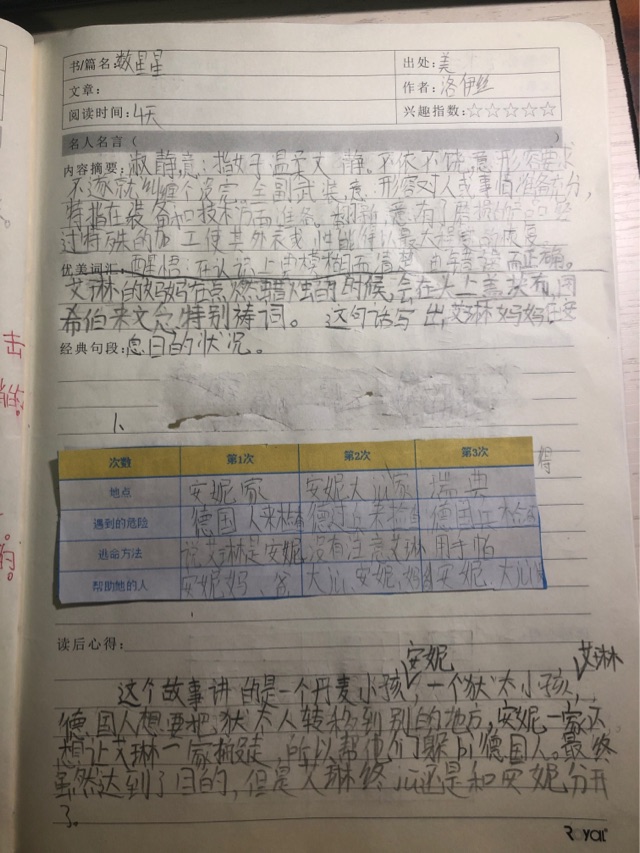 书/篇名: 数星星 出处: 美
文章: 作者: 洛伊丝
阅读时间: 4天 兴趣指数: ☆☆☆☆☆
名人名言 ( )
内容摘要: 淑静,意:指女子温柔文静。不依不饶,意形容要求
不遂就纠缠个没完 全副武装 意 形容对人或事情准备充分,
特指在装备和技术方面准备。 意,有了磨损的
过特殊的加工使其外表或性能得以最大程度的恢复
优美词汇: 醒悟:在认识上由模糊而清楚,由错误而正确。
艾琳的妈妈在点燃蜡烛的时候,会在头上盖块布,用
希伯来文念特别祷词。 这句话写出,艾琳妈妈
经典句段: 的状况。
1、
得
次数 第1次 第2次 第3次
地点 安妮家 安妮大 家 瑞典
遇到的危险 德国人来检查 德 来检查 德国兵检查
逃命方法 说艾琳是安妮 没有注意艾琳 用手帕
帮助她的人 安妮妈、爸 大 、安妮、妈 安妮、大
读后心得:
安妮 艾琳
这个故事讲的是一个丹麦小孩,一个犹太小孩,
德国人想要把犹太人转移到别的地方,安妮一家还
想让艾琳一家 ,所以帮他们躲 德国人。最终
虽然达到了目的,但是艾琳终 还是和安妮分开
了。
Royal